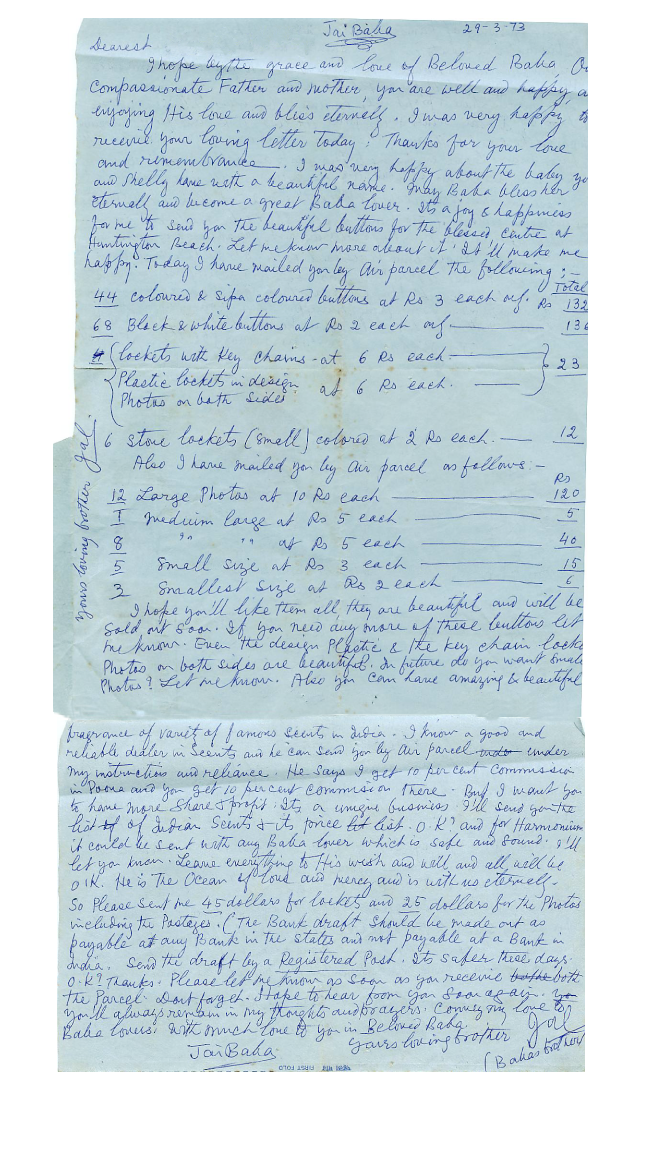 Jai Baba
29-3-73
Dearest
I hope by the grace and love of Beloved Baba Ou
compassionate Father and mother, you are well and happy, a
enjoying His love and bliss eternally. I was very happy to
receive your loving letter today! Thanks for your love
and remembrance. I was very happy about the baby yo
and Shelly have with a beautiful name. May Baba bless her
eternall and become a great Baba lover. Its a joy & happiness
for me to send you the beautiful buttons for the blessed centre at
Huntington Beach. Let me know more about it! It'll make me
happy. Today I have mailed you by Air parcel the following :-
Total
44 coloured & Sipa coloured buttons at Rs 3 each only. Rs 132
68 Black & white buttons at Rs 2 each only 136
Lockets with Key Chains - at 6 Rs each 23
Plastic lockets in design at 6 Rs each.
Photos on both sides
6 Stone lockets (small) colored at 2 Rs each. 12
Also I have mailed you by Air parcel as follows:-
Rs
12 Large Photos at 10 Rs each 120
1 Medium large at Rs 5 each 5
8 " " at Rs 5 each 40
5 Small size at Rs 3 each 15
3 Smallest size at Rs 2 each 6
I hope you'll like them all they are beautiful and will be
sold out soon. If you need any more of these buttons let
me know. Even the design Plastic & the key chain locke
Photos on both sides are beautiful. In future do you want small
Photos? Let me know. Also you can have amazing & beautiful
yours loving brother Jal.
fragrance of variety of famous scents in India. I know a good and
reliable dealer in Scents and he can send you by Air parcel under
my instruction and reliance. He says I get 10 per cent Commission
in Poona and you get 10 percent commission there. But I want you
to have more Share & profit. Its a unique business. I'll send you the
list of of Indian Scents & its price list list. O.K? and for Harmonium
it could be sent with any Baba lover which is safe and sound. I'll
let you know. Leave everything to His wish and will and all will be
O.K. He is the Ocean of love and mercy and is with us eternally.
So Please sent me 45 dollars for lockets and 25 dollars for the Photos
including the Posteges. (The Bank draft should be made out as
payable at any Bank in the States and not payable at a Bank in
India. Send the draft by a Registered Post. Its safer these days.
O.K? Thanks. Please let me know as soon as you receive both
the Parcel. Dont forget. Hope to hear from you soon again.
you'll always remain in my thoughts and prayers. Convey my love to
Baba lovers. With much love to you in Beloved Baba.
Jai Baba
Yours loving brother Jal
(Babas brother
FIRST FOLD